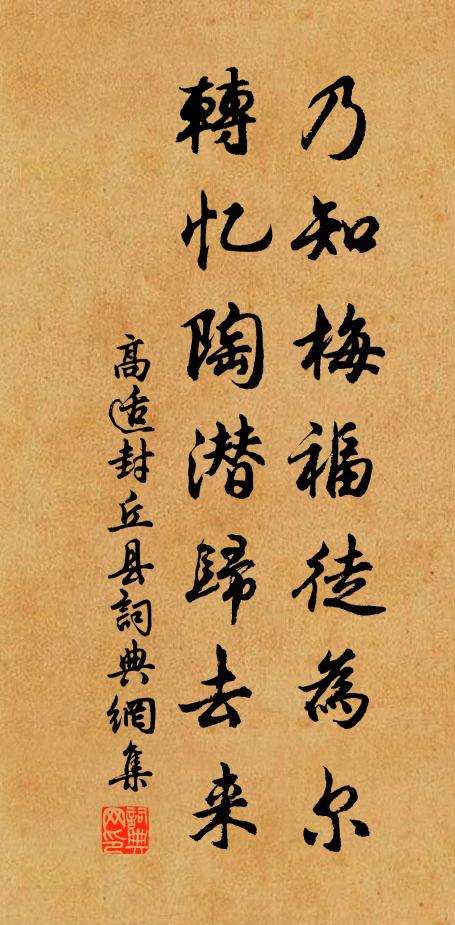 乃知梅福徒為尔
轉忆陶潜歸去来
高适封丘县詞典網集
詞典网印